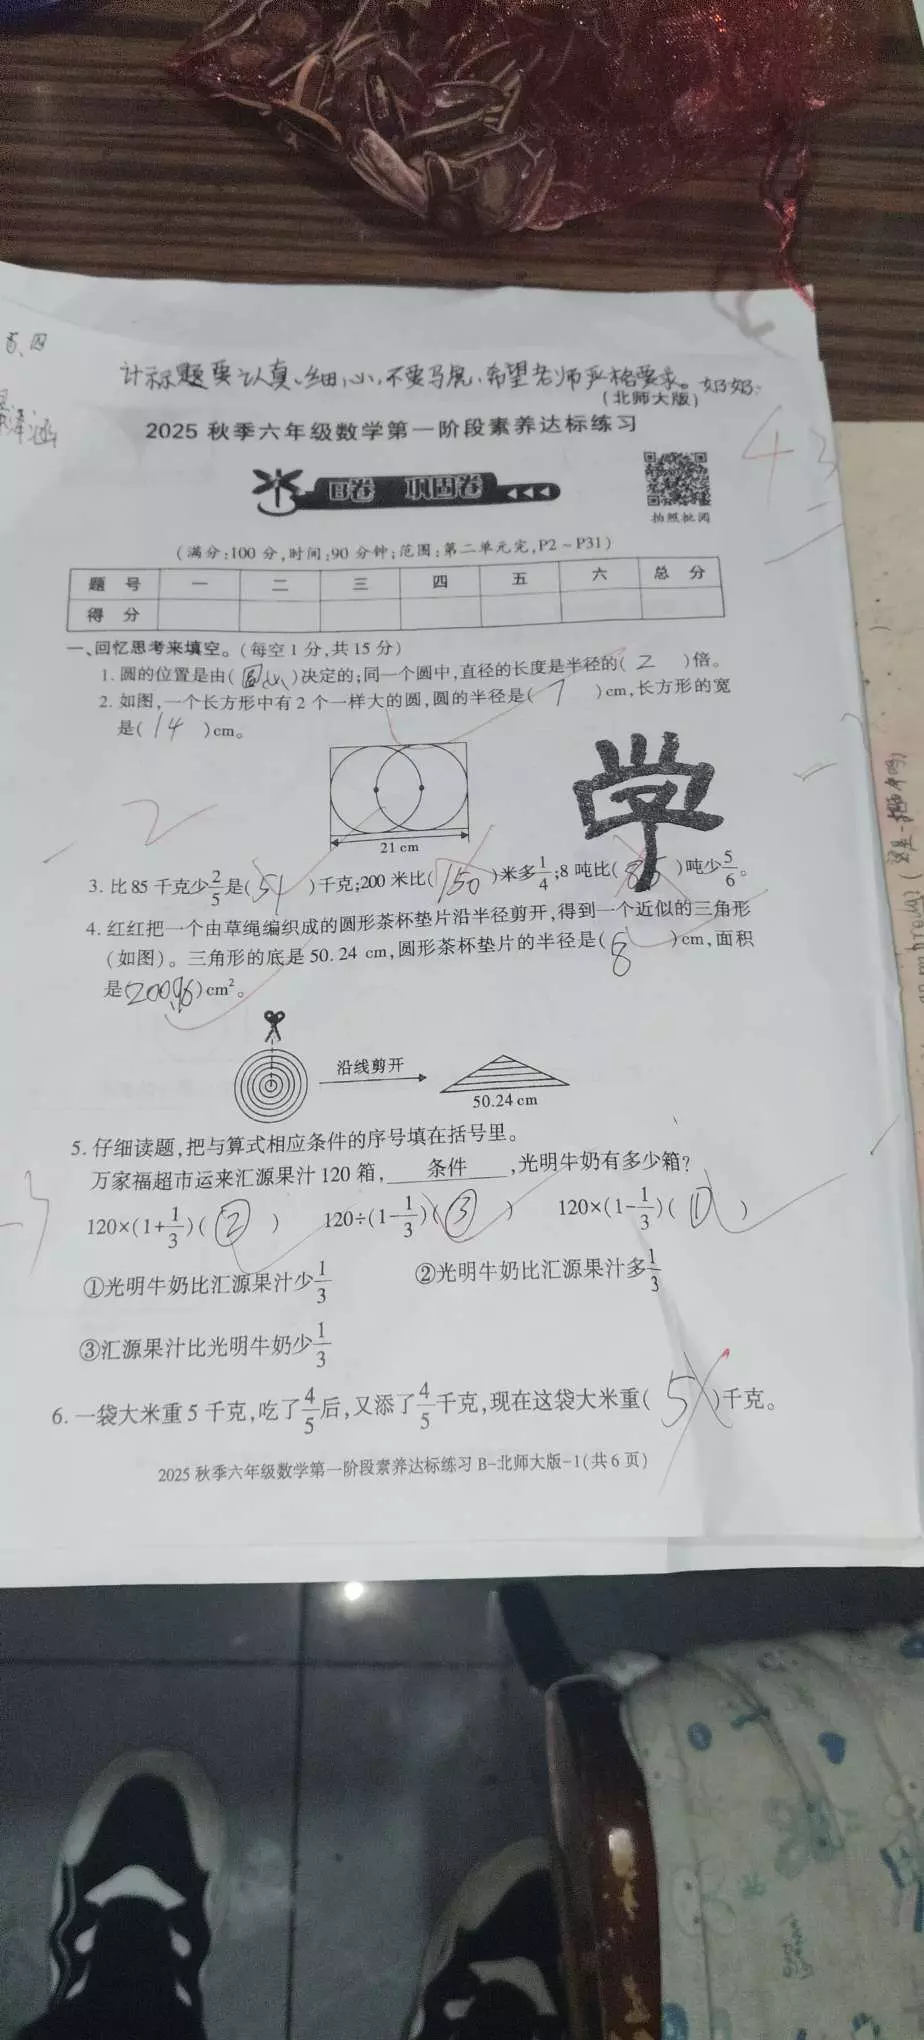 计标题要认真、细心,不要马虎、希望老师严格要求。奶奶:
(北师大版)
2025 秋季六年级数学第一阶段素养达标练习
43
B卷 巩固卷
拍照批阅
(满分:100 分,时间:90 分钟;范围:第二单元完,P2~P31)
题 号 一 二 三 四 五 六 总 分
得 分
一、回忆思考来填空。(每空 1 分,共 15 分)
1. 圆的位置是由(圆心)决定的;同一个圆中,直径的长度是半径的( 2 )倍。
2. 如图,一个长方形中有 2 个一样大的圆,圆的半径是( 7 )cm,长方形的宽
是( 14 )cm。
学
21 cm
-2
3. 比 85 千克少2/5是( 51 )千克;200 米比( 150 )米多1/4;8 吨比( )吨少5/6。
4. 红红把一个由草绳编织成的圆形茶杯垫片沿半径剪开,得到一个近似的三角形
(如图)。三角形的底是 50.24 cm,圆形茶杯垫片的半径是( 8 )cm,面积
是(200.96)cm²。
沿线剪开
50.24 cm
5. 仔细读题,把与算式相应条件的序号填在括号里。
万家福超市运来汇源果汁 120 箱,条件,光明牛奶有多少箱?
-3
120×(1+1/3)( ② ) 120÷(1-1/3)( ③ ) 120×(1-1/3)( ① )
①光明牛奶比汇源果汁少1/3 ②光明牛奶比汇源果汁多1/3
③汇源果汁比光明牛奶少1/3
6. 一袋大米重 5 千克,吃了4/5后,又添了4/5千克,现在这袋大米重( 5 )千克。
2025 秋季六年级数学第一阶段素养达标练习 B-北师大版-1(共 6 页)